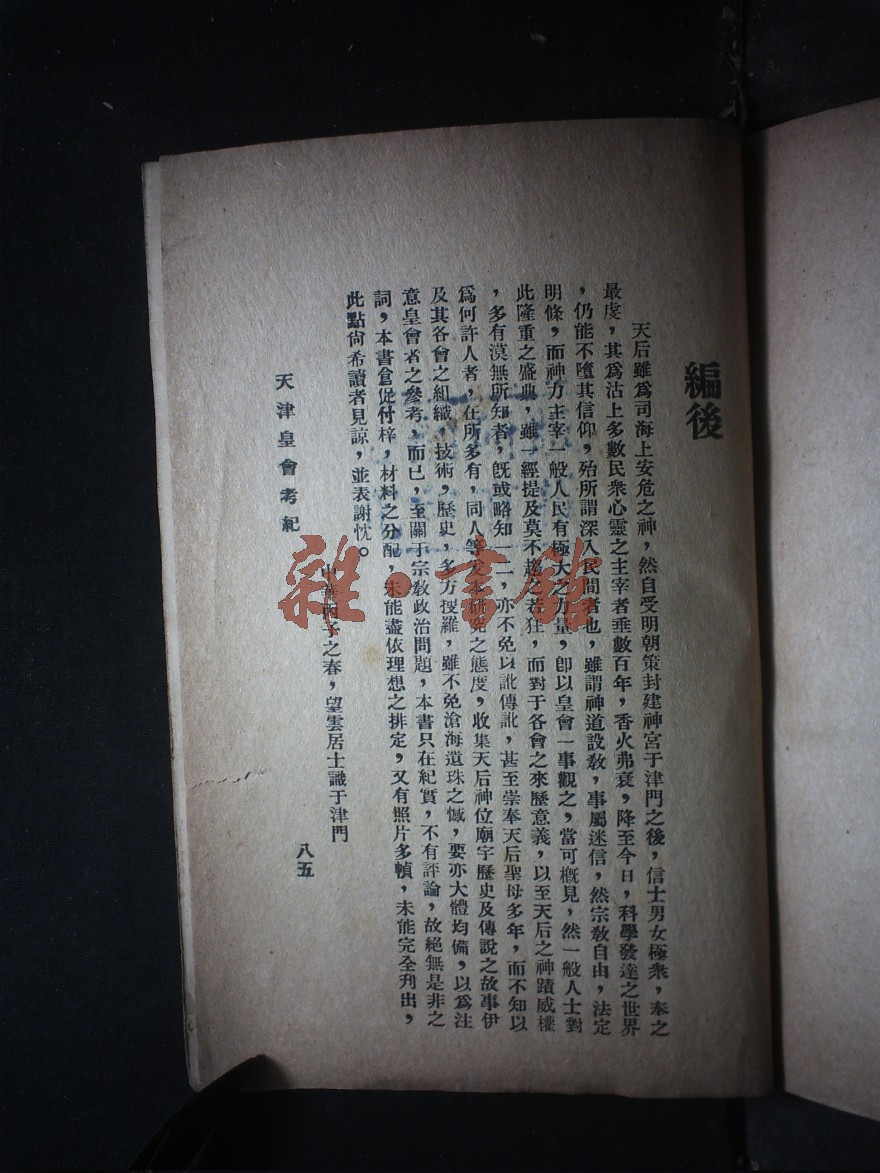 編後
天后雖爲司海上安危之神，然自受明朝策封建神宮于津門之後，信士男女極衆，奉之
最虔，其爲沽上多數民衆心靈之主宰者垂數百年，香火弗衰，降至今日，科學發達之世界
，仍能不墮其信仰，殆所謂深入民間者也，雖謂神道設敎，事屬迷信，然宗敎自由，法定
明條，而神力主宰一般人民有極大之力量，卽以皇會一事觀之，當可槪見，然一般人士對
此隆重之盛典，雖一經提及莫不趨之若狂，而對于各會之來歷意義，以至天后之神蹟威權
，多有漠無所知者，旣或略知一二，亦不免以訛傳訛，甚至崇奉天后聖母多年，而不知以
爲何許人者，在所多有，同人等本研究之態度，收集天后神位廟宇歷史及傳說之故事伊
及其各會之組織，技術，歷史，多方搜羅，雖不免滄海遺珠之憾，要亦大體均備，以爲注
意皇會者之參考，而已，至關于宗敎政治問題，本書只在紀實，不有評論，故絕無是非之
詞，本書倉促付梓，材料之分配，未能盡依理想之排定，又有照片多幀，未能完全刋出，
此點尙希讀者見諒，並表謝忱。
中華丙子之春，望雲居士識于津門
天津皇會考紀
八五
雜·書館